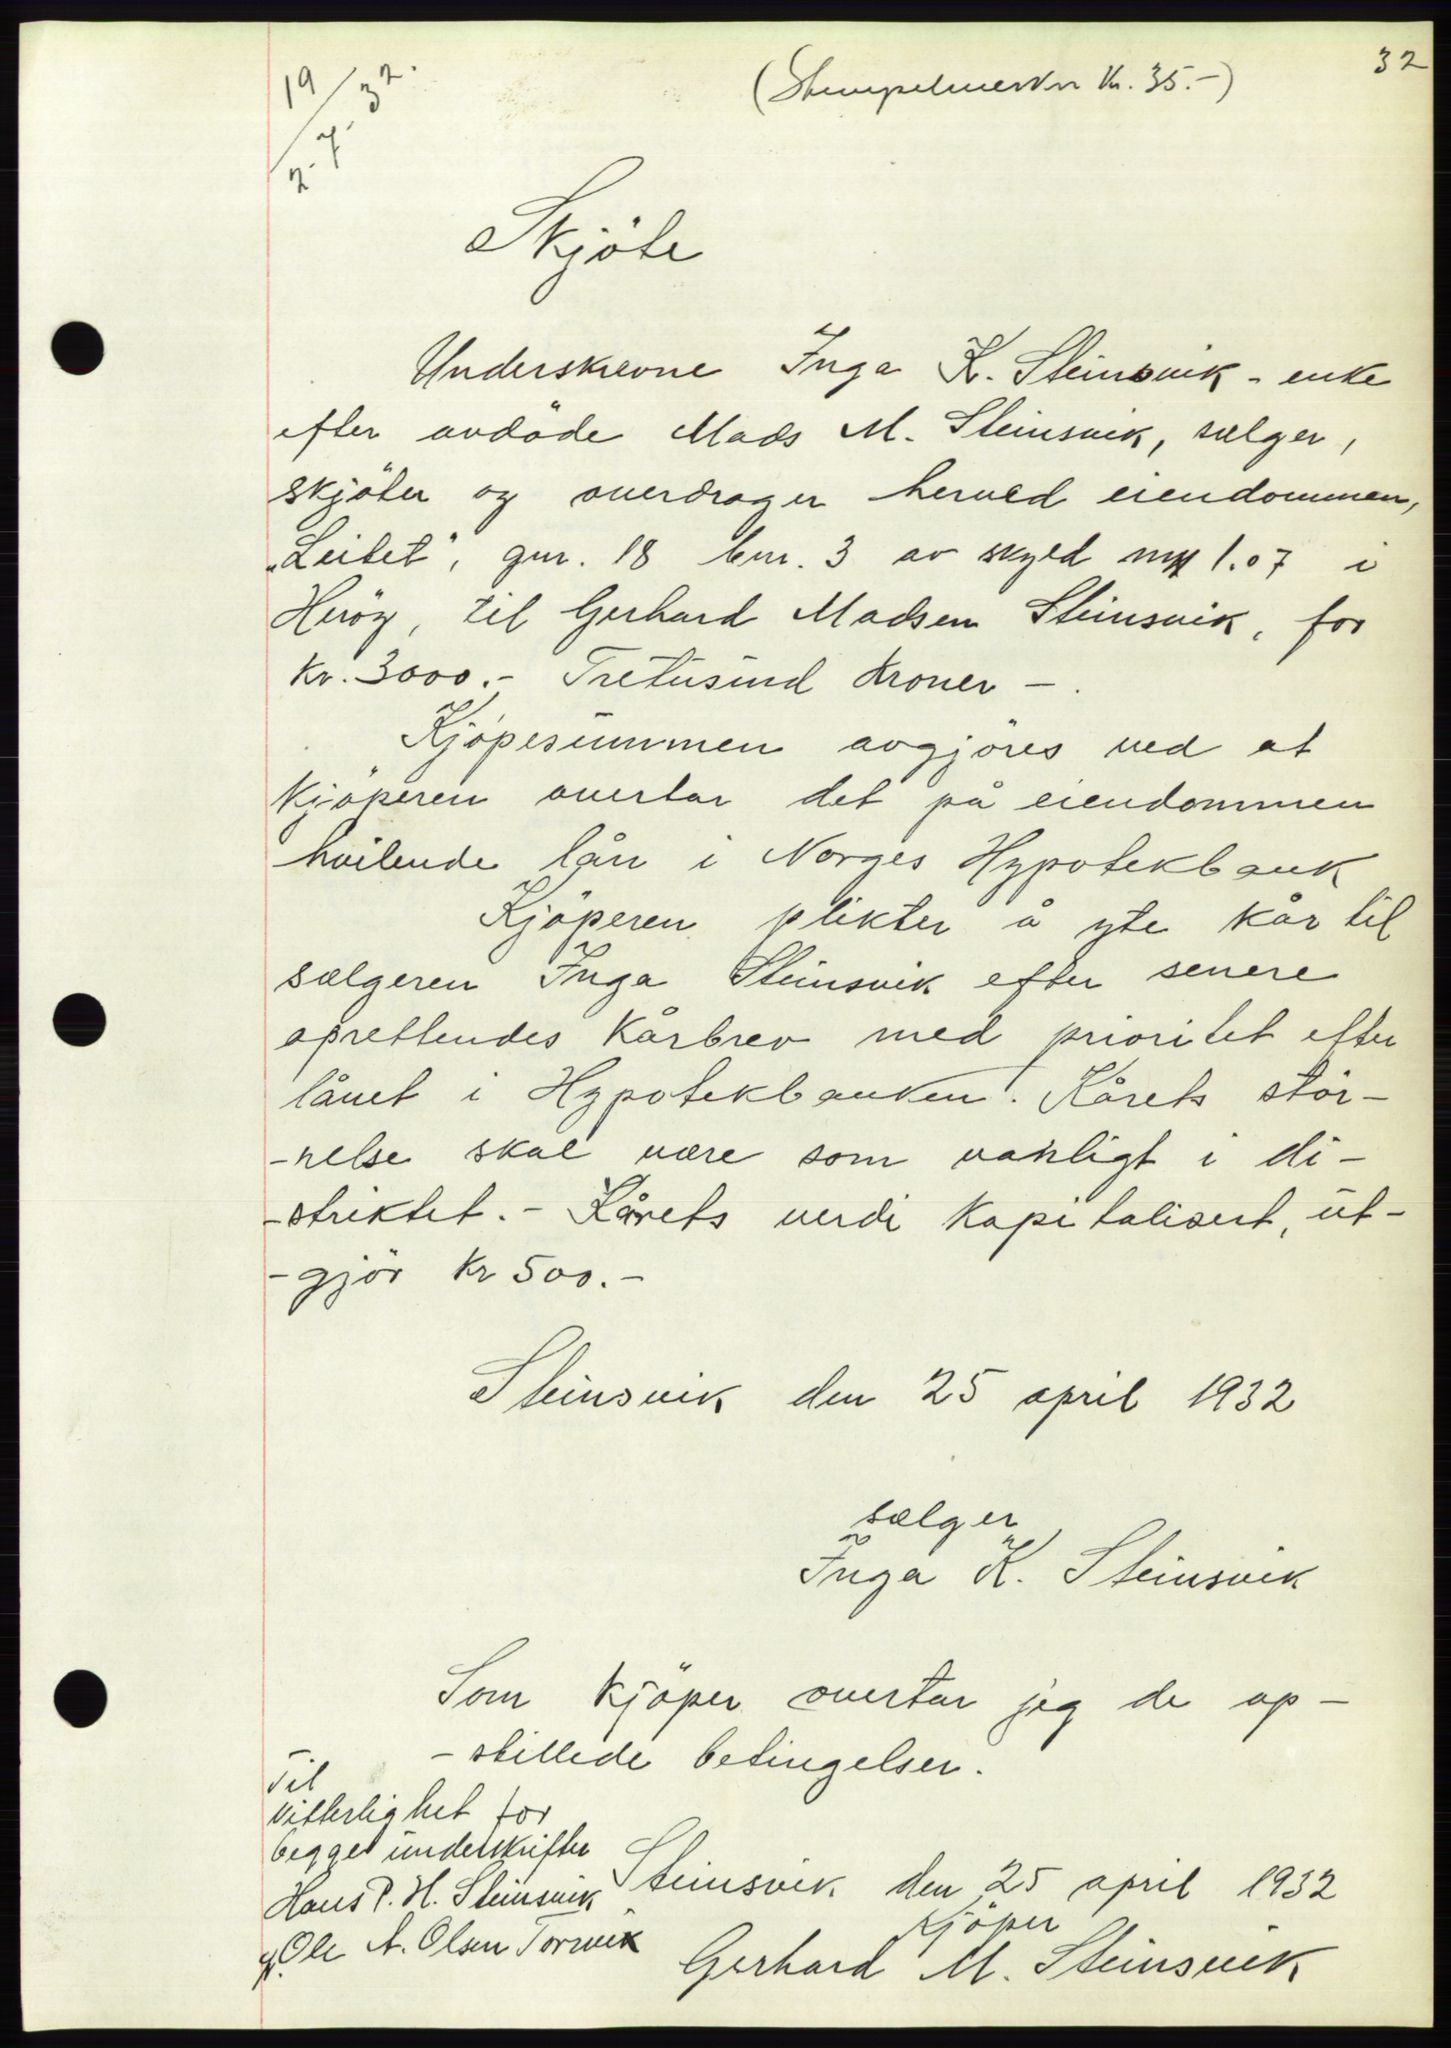 32
19/7. 32.
2.
(Stempelmerker Kr. 35.-)
Skjöte
Underskrevne Inga K. Steinsvik - enke
efter avdöde Mads M. Steinsvik, sælger,
skjöter og overdrager herved eiendommen,
"Leitet", gnr. 18 bnr. 3 av skyld mrk 1.07 i
Heröy, til Gerhard Madsen Steinsvik, for
kr. 3000.- Tretusind Kroner -.
Kjöpesummen avgjöres ved at
Kjöperen overtar det på eiendommen
hvilende lån i Norges Hypotekbank
Kjöperen plikter å yte kår til
sælgeren Inga Steinsvik efter senere
oprettendes Kårbrev med prioritet efter
lånet i Hypotekbanken. Kårets stör-
-relse skal være som vanligt i di-
-striktet. - Kårets verdi Kapitalisert, ut-
-gjör kr 500.-
Steinsvik den 25 april 1932
sælger
Inga K. Steinsvik
Som Kjöper overtar jeg de op-
-stillede betingelser.
Til
vitterlighet for
begge underskrifter
Hans P. H. Steinsvik
Ole A. Olsen Torvik
Steinsvik den 25 april 1932
Kjöper
Gerhard M. Steinsvik